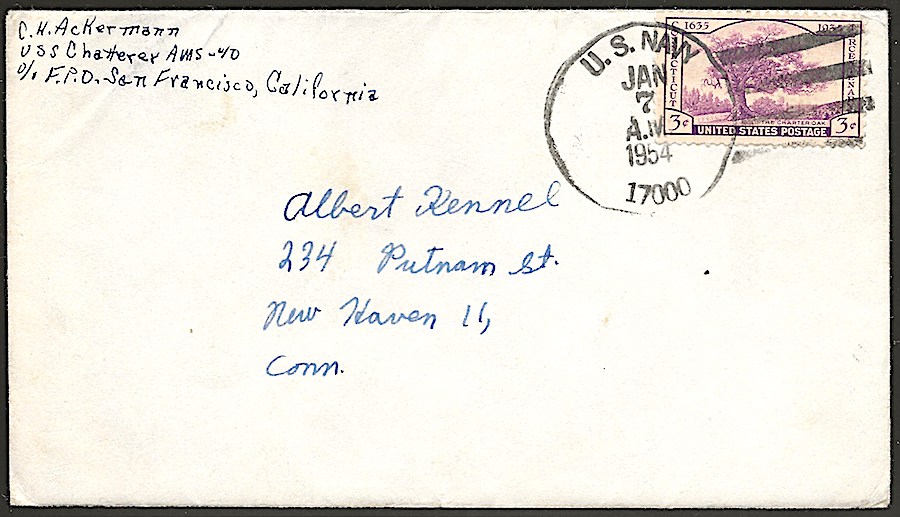 C.H. Ackermann
USS Chatterer AMS-40
c/o F.P.O. San Francisco, California
U.S. NAVY
JAN
7
A.M
1954
17000
1635
CONNECTICUT
THE CHARTER OAK
3¢ UNITED STATES POSTAGE 3¢
Albert Kennel
234 Putnam St.
New Haven 11,
Conn.